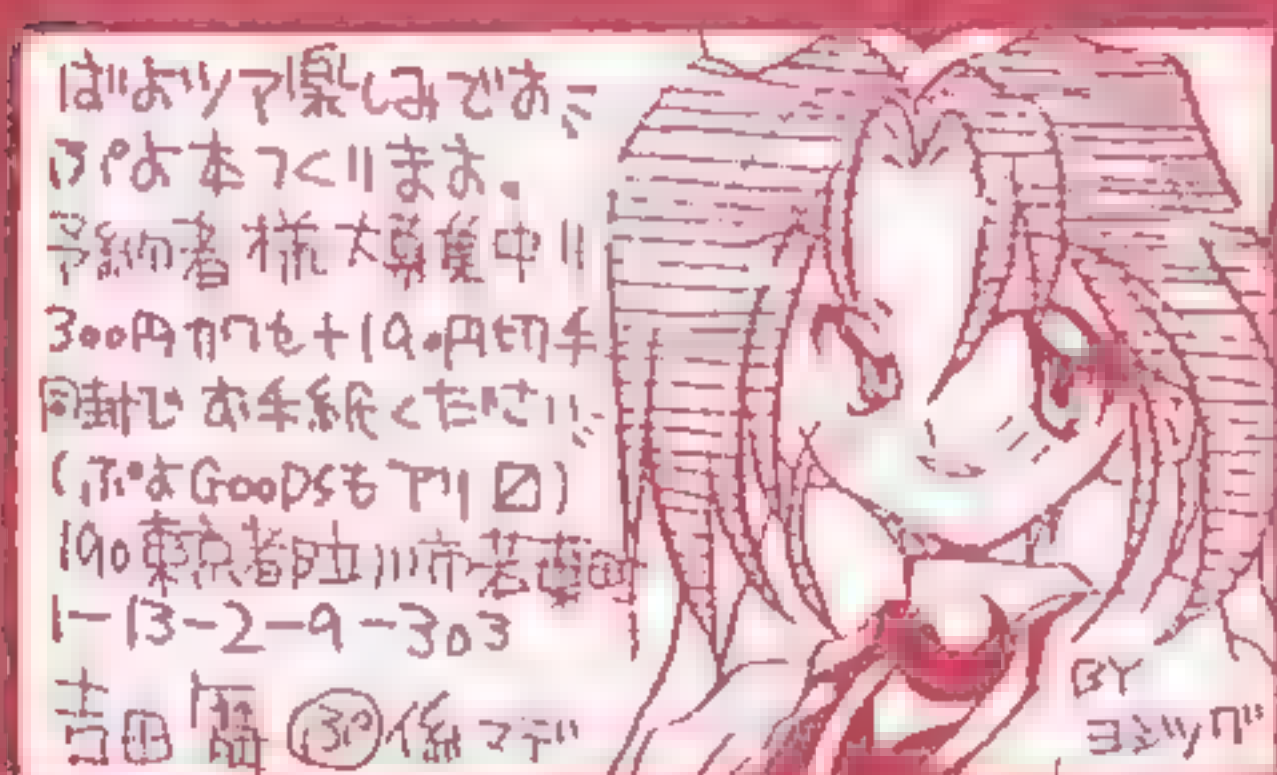 ばよツア楽しみです
ぷよ本つくります。
予約者様大募集中!!
300円カワセ+190円切手
同封でお手紙ください
(ぷよGOODSもアリ〼)
190東京都立川市若葉町
1-13-2-9-303
吉田 ぷ係マデ
BY
ヨシツグ